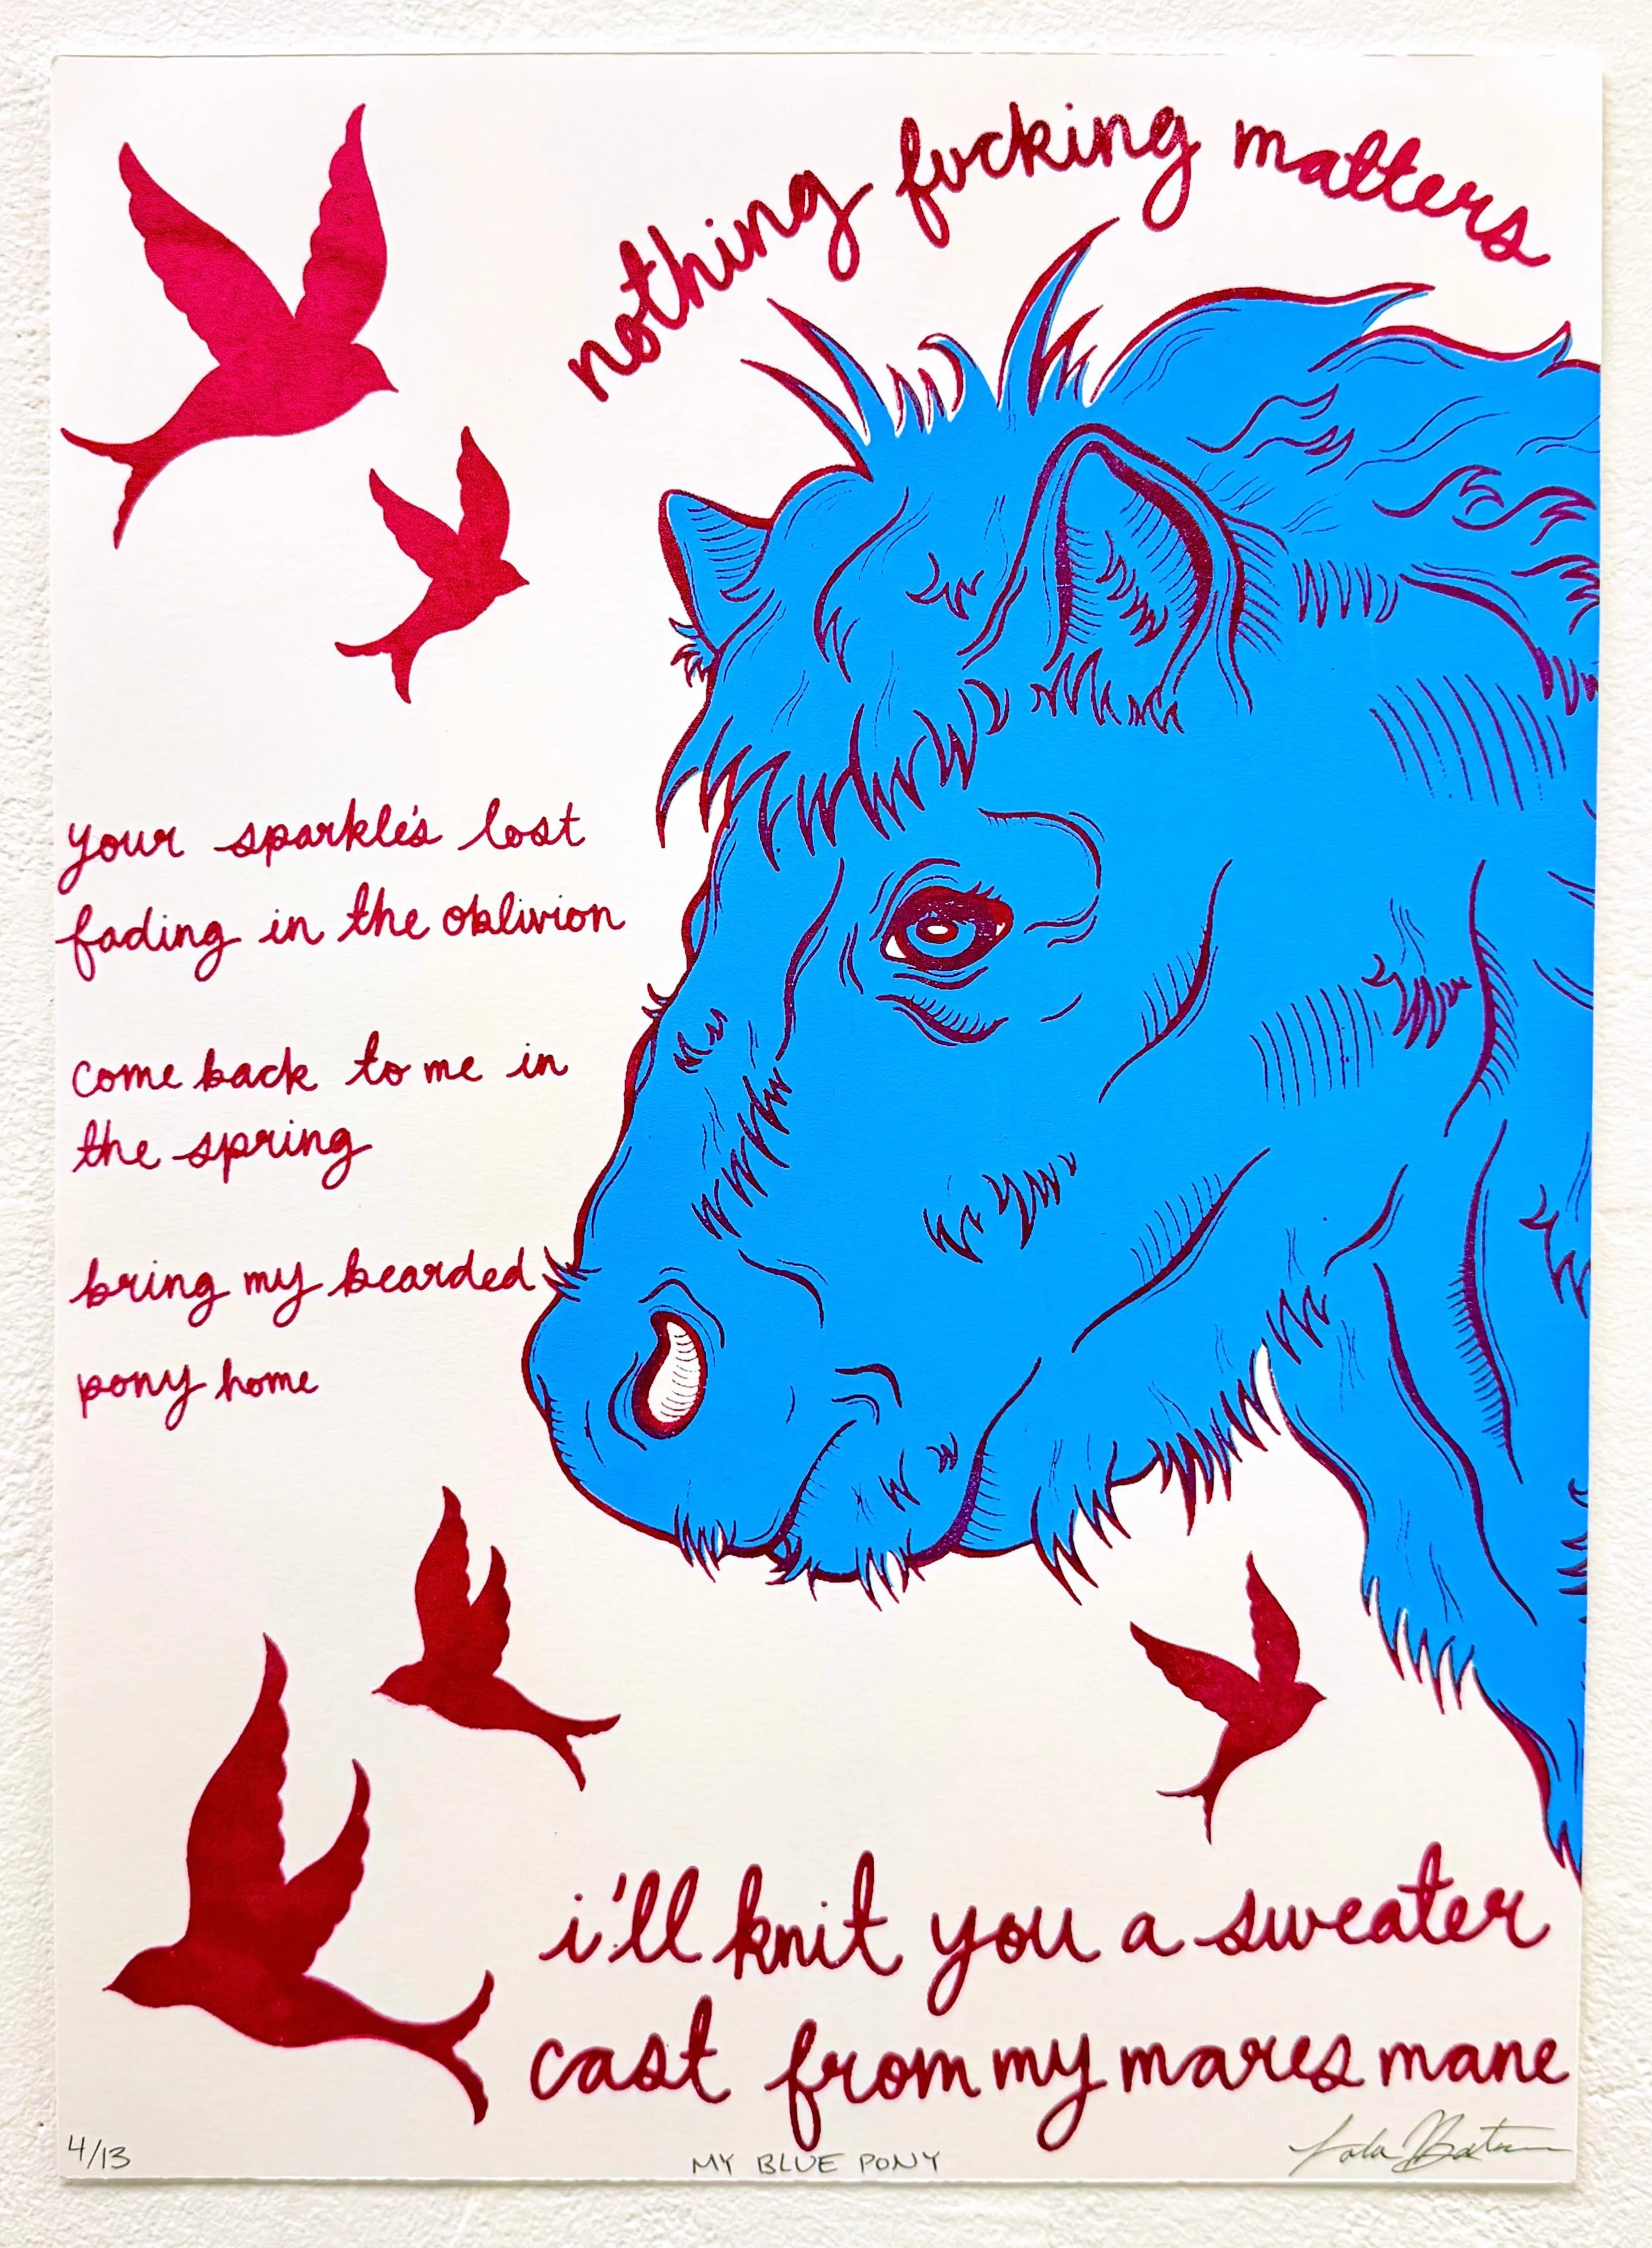 nothing fucking matters
your sparkle's lost
fading in the oblivion
come back to me in
the spring
bring my bearded
pony home
i'll knit you a sweater
cast from my mares mane
4/13
MY BLUE PONY